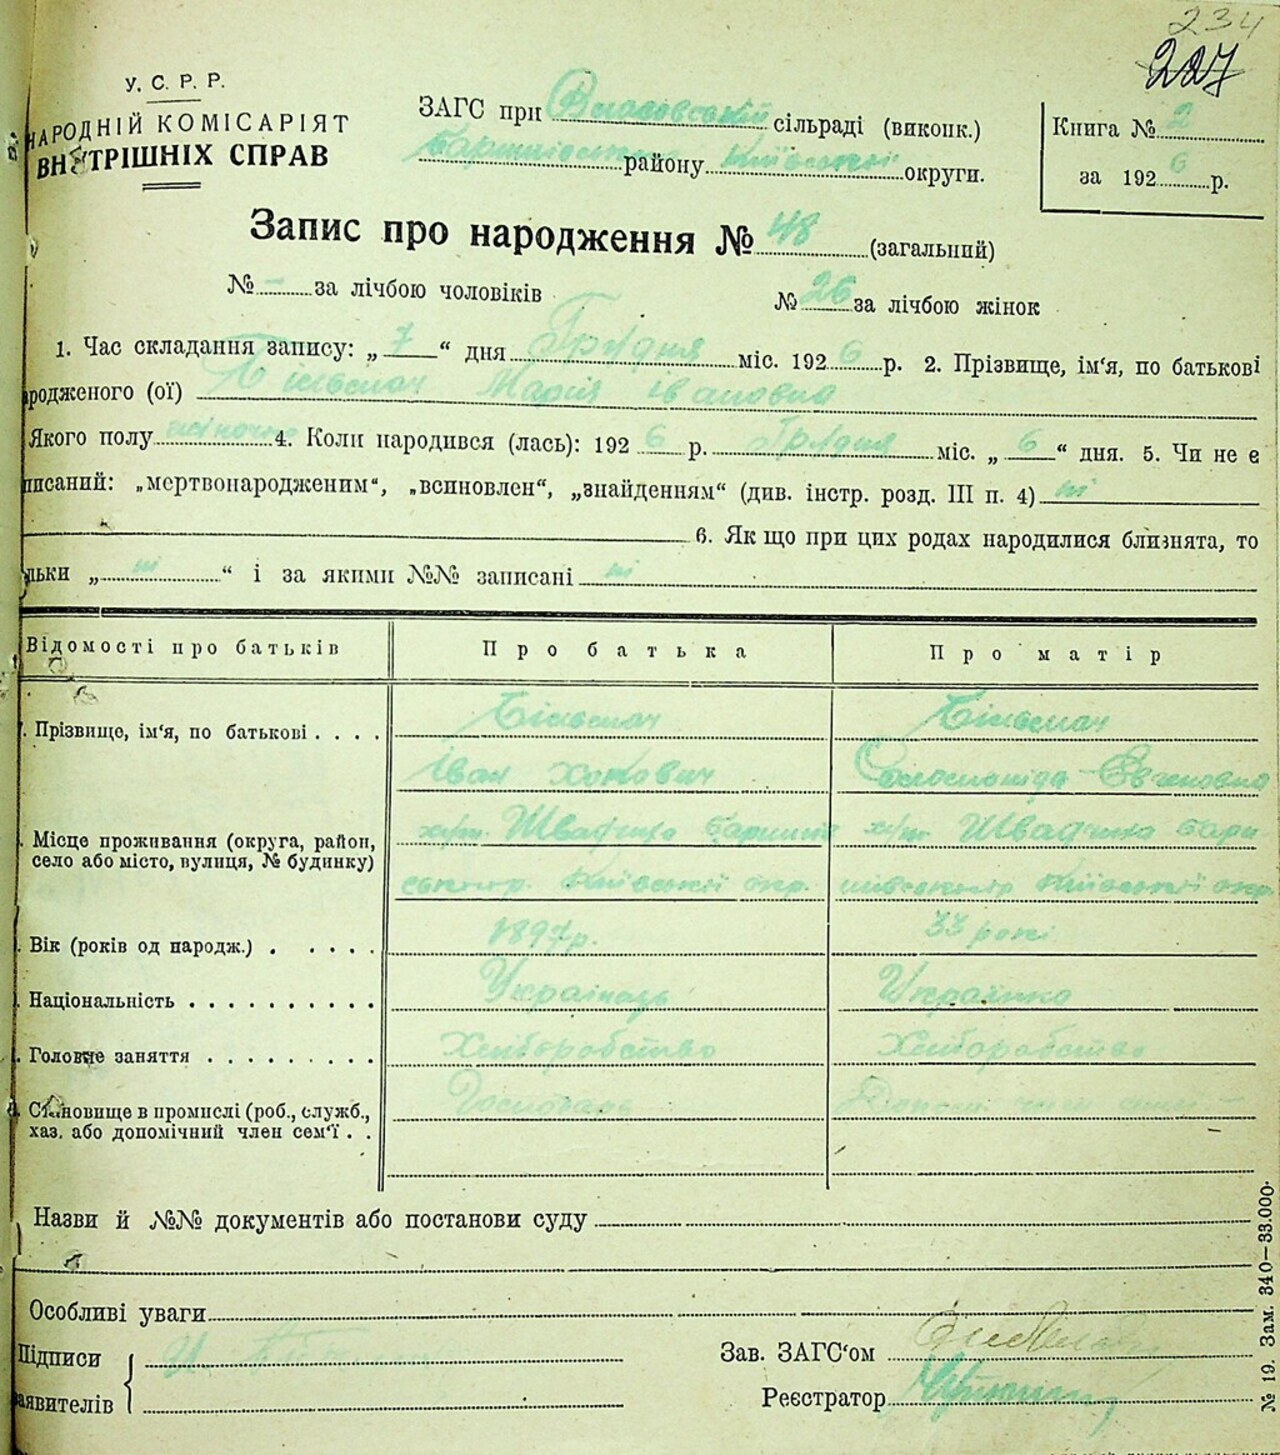 234
227
У. С. Р. Р.
НАРОДНІЙ КОМІСАРІЯТ
ВНУТРІШНІХ СПРАВ
ЗАГС при сільраді (виконк.)
району Київської округи.
Книга № 2
за 1926 р.
Запис про народження № 48 (загальний)
№ - за лічбою чоловіків
№ 26 за лічбою жінок
1. Час складання запису: „ 7 “ дня Грудня міс. 1926 р. 2. Прізвище, ім'я, по батькові
родженого (ої) Марія Івановна
Якого полу жіночого 4. Коли народився (лась): 1926 р. Грудня міс. „ 6 “ дня. 5. Чи не є
писаний: „мертвонародженим“, „всиновлен“, „знайденням“ (див. інстр. розд. III п. 4) ні
6. Як що при цих родах народилися близнята, то
льки „ ні “ і за якими №№ записані ні
Відомості про батьків
Про батька
Про матір
Прізвище, ім'я, по батькові . . . .
Іван
Місце проживання (округа, район,
село або місто, вулиця, № будинку)
Київської окр.
Київської окр.
Вік (років од народж.) . . . . .
1897р.
33 роки
Національність . . . . . . . . . .
Українець
Українка
Головне заняття . . . . . . . . .
Хліборобство
Хліборобство
Становище в промислі (роб., служб.,
хаз. або допомічний член сем'ї . .
Господарь
Допом. член сімї
Назви й №№ документів або постанови суду
Особливі уваги
Підписи
аявителів
Зав. ЗАГС'ом
Реєстратор
№ 19. Зам. 340—33.000.